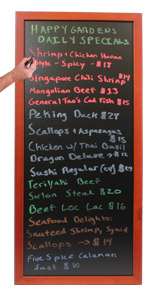 HAPPY GARDENS
DAILY SPECIALS
Shrimp + Chicken Hunan
Style - Spicy - $18
Singapore Chili Shrimp $19
Mongolian Beef $13
General Tao's Cod Fish $15
Peking Duck $28
Scallops + Asparagus
$15
Chicken w/ Thai Basil
Dragon Deluxe → $12
Sushi Regular (for) $29
Teriyaki Beef
Sirloin Steak $20
Beef Loc Lac $16
Seafood Delights:
Sauteed Shrimp, Squid
Scallops → $14
Five Spice Calamari
Just $10